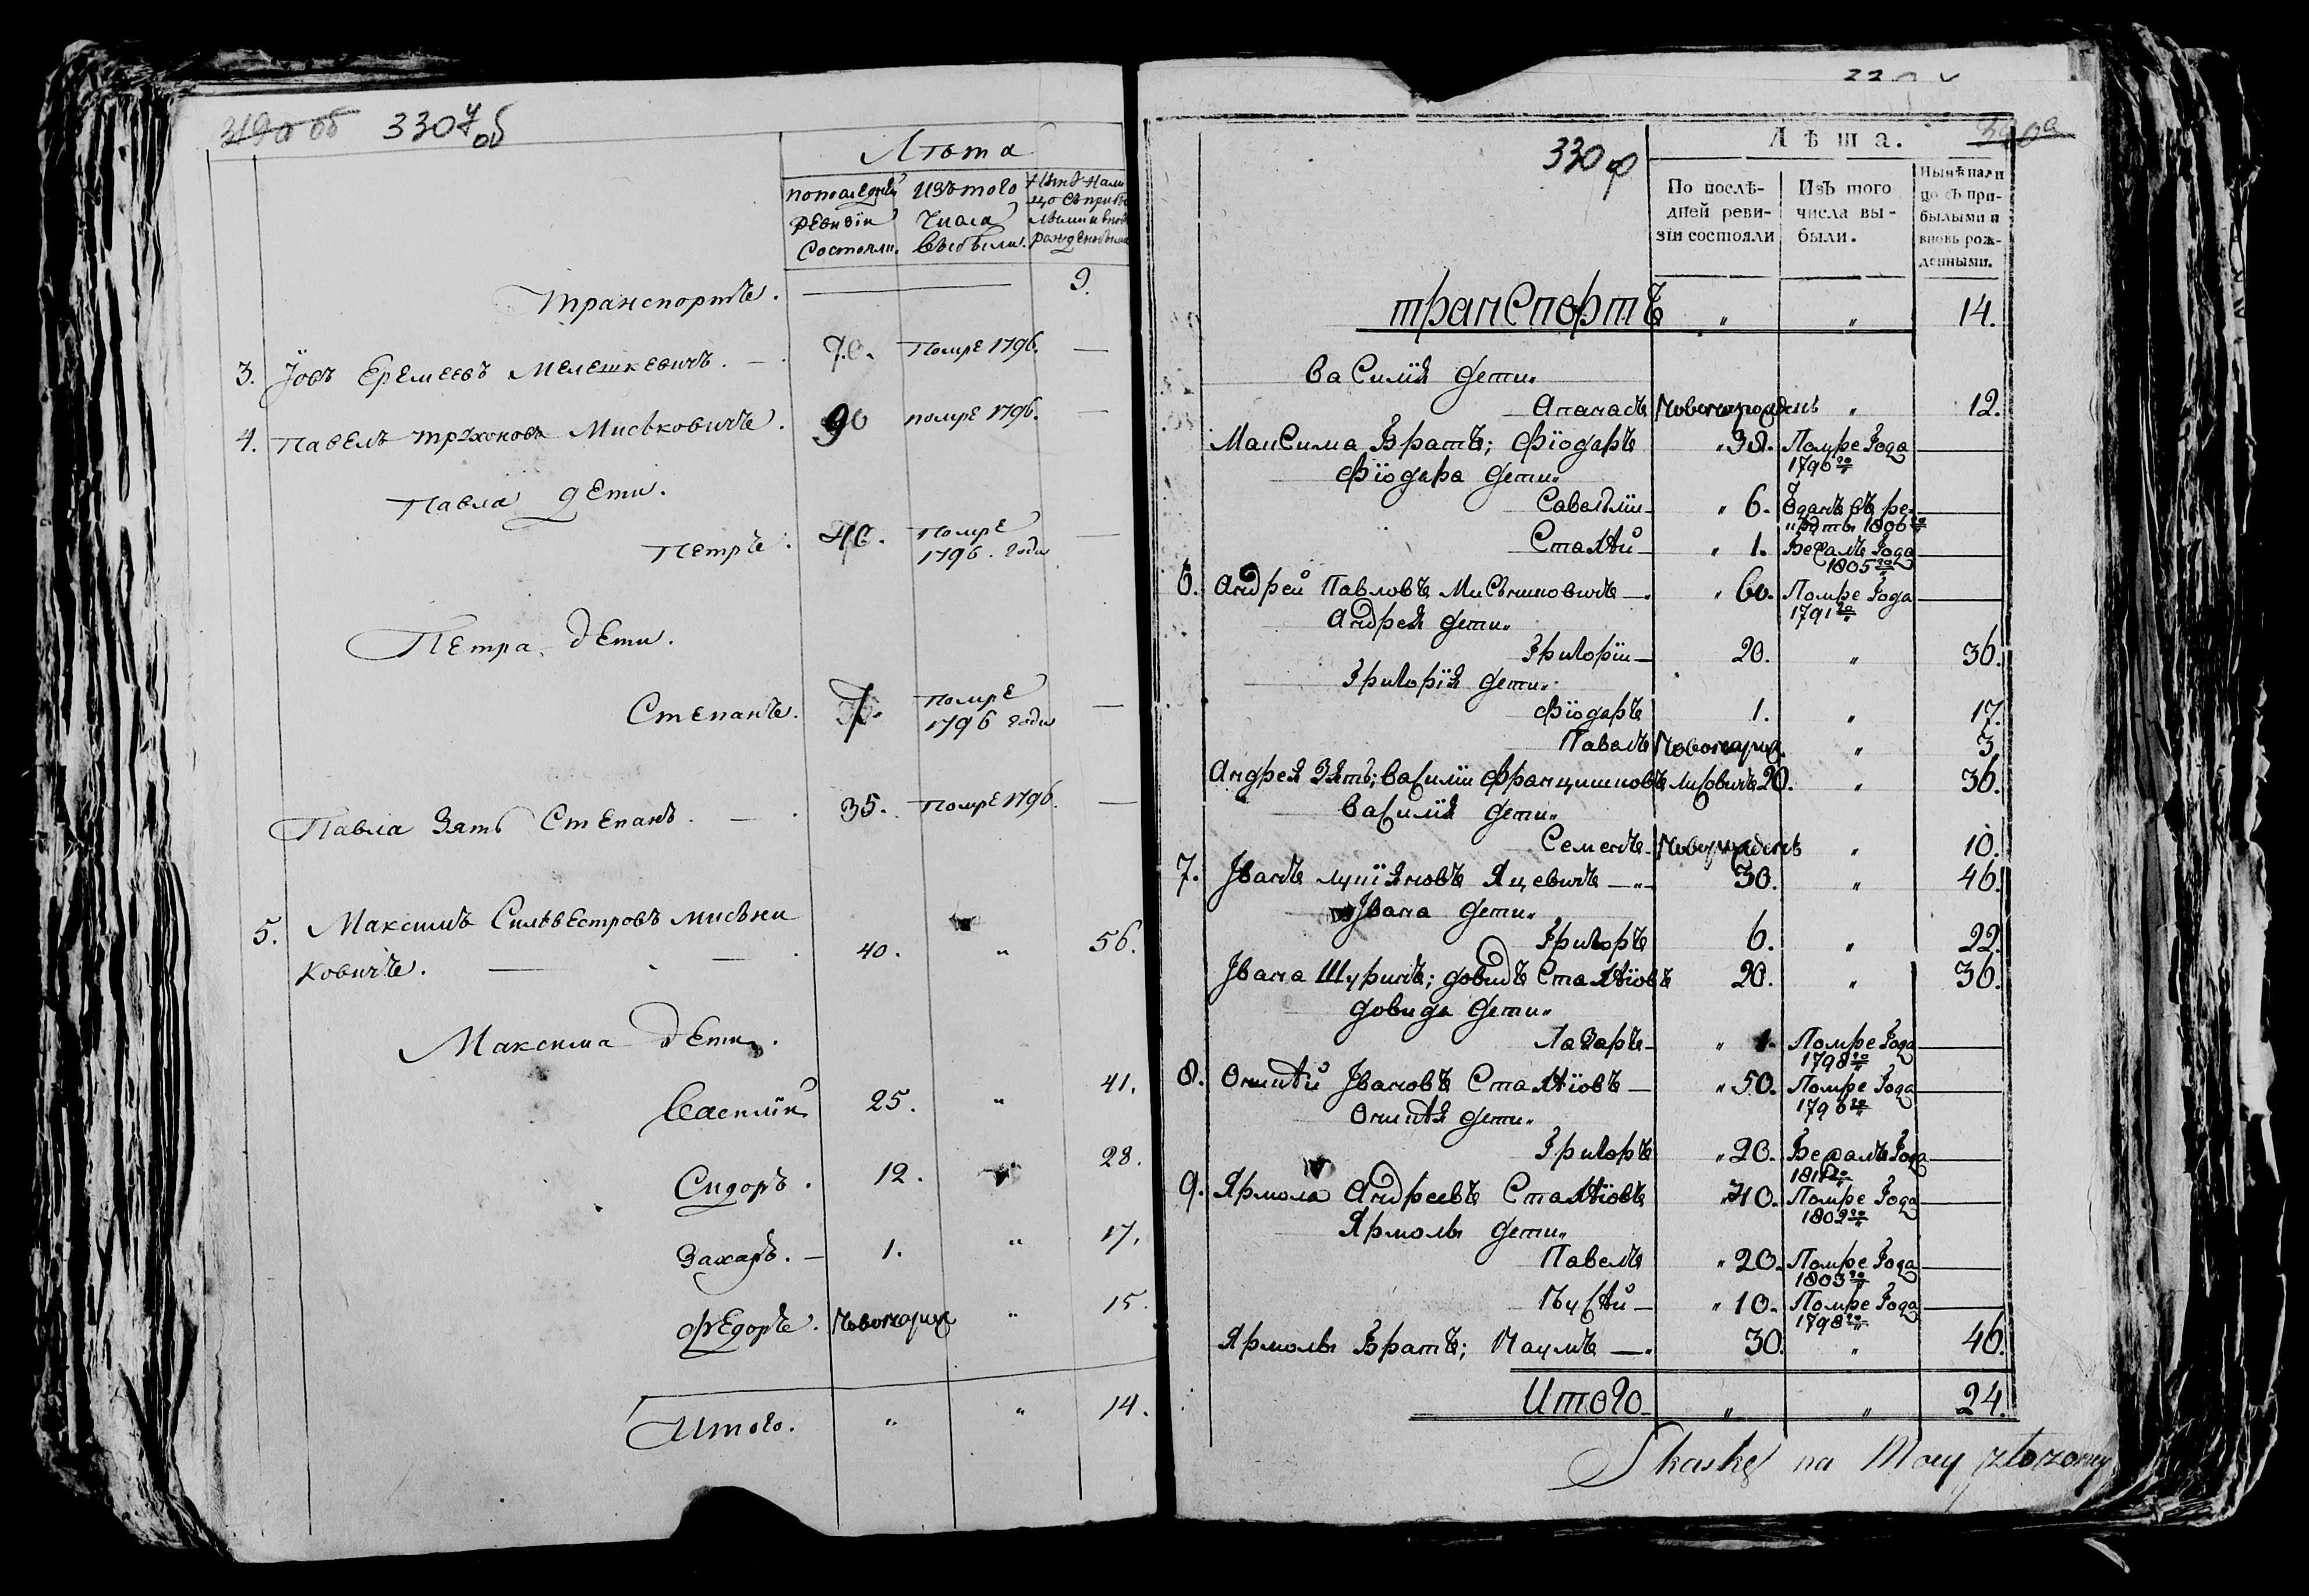 319а об 330 у об
Лѣта
попоследней ревизіи состояли.
изъ того числа выбыли.
Нынѣ нали цо съ прибылыми и вновь рожденными
транспортъ. 9.
3. Іовъ Еремеевъ Мелешкевичъ. 70. помре 1796. —
4. Павелъ Трухоновъ Миськовичъ. 90 помре 1796. —
Павла дети.
Петръ. 40. помре 1796. года —
Петра дети.
Степанъ. 7. помре 1796 года —
Павла зять Степанъ. 35. помре 1796. —
5. Максимъ Сильвестровъ миськи
ковичъ. 40. „ 56.
Максима дети.
Василій 25. „ 41.
Сидоръ. 12. „ 28.
Захаръ. 1. „ 17.
Федоръ. новонарож „ 15.
Итого. „ „ 14.
330 ф
Лѣта.
По послѣ-
дней реви-
зіи состояли
Изъ того
числа вы-
были.
Нынѣ нали
цо съ при-
былыми и
вновь рож-
денными.
транспортъ „ „ 14.
Василія дети.
Апанасъ Новонарожденъ „ 12.
Максима Братъ; Фіодаръ „ 38. Помре Года 1796го —
Фіодара дети.
Савелъій „ 6. Оданъ въ ре- круты 1806го —
Стахѣй „ 1. Бежалъ Года 1805го —
6. Андрей Павловъ Миськиковичъ „ 60. Помре Года 1791го —
Андрея дети.
Григорій 20. „ 36.
Григорія дети.
Фіодаръ 1. „ 17.
Павелъ Новонарож. „ 3
Андрея Зять; Василій Францишковъ 20. „ 36.
Василія дети.
Семенъ „ 10.
7. Іванъ Яцевичъ 30. „ 46.
Івана дети.
Григоръ 6. „ 22.
Івана Шуринъ; Довидъ Стахѣіовъ 20. „ 36.
Довида дети.
Лазаръ „ 1. Помре Года 1798го —
8. Івановъ Стахѣіовъ „ 50. Помре Года 1796го —
дети.
Григоръ „ 20. Бежалъ Года —
9. Ярмола Андреевъ Стахѣіовъ „ 40. Помре Года 1802го —
Ярмолы дети.
Павелъ „ 20. Помре Года 1803го —
„ 10. Помре Года 1798го —
Ярмолы Братъ; Наумъ 30. „ 46.
Итого „ „ 24.
Skaskę na Mocy złożoney